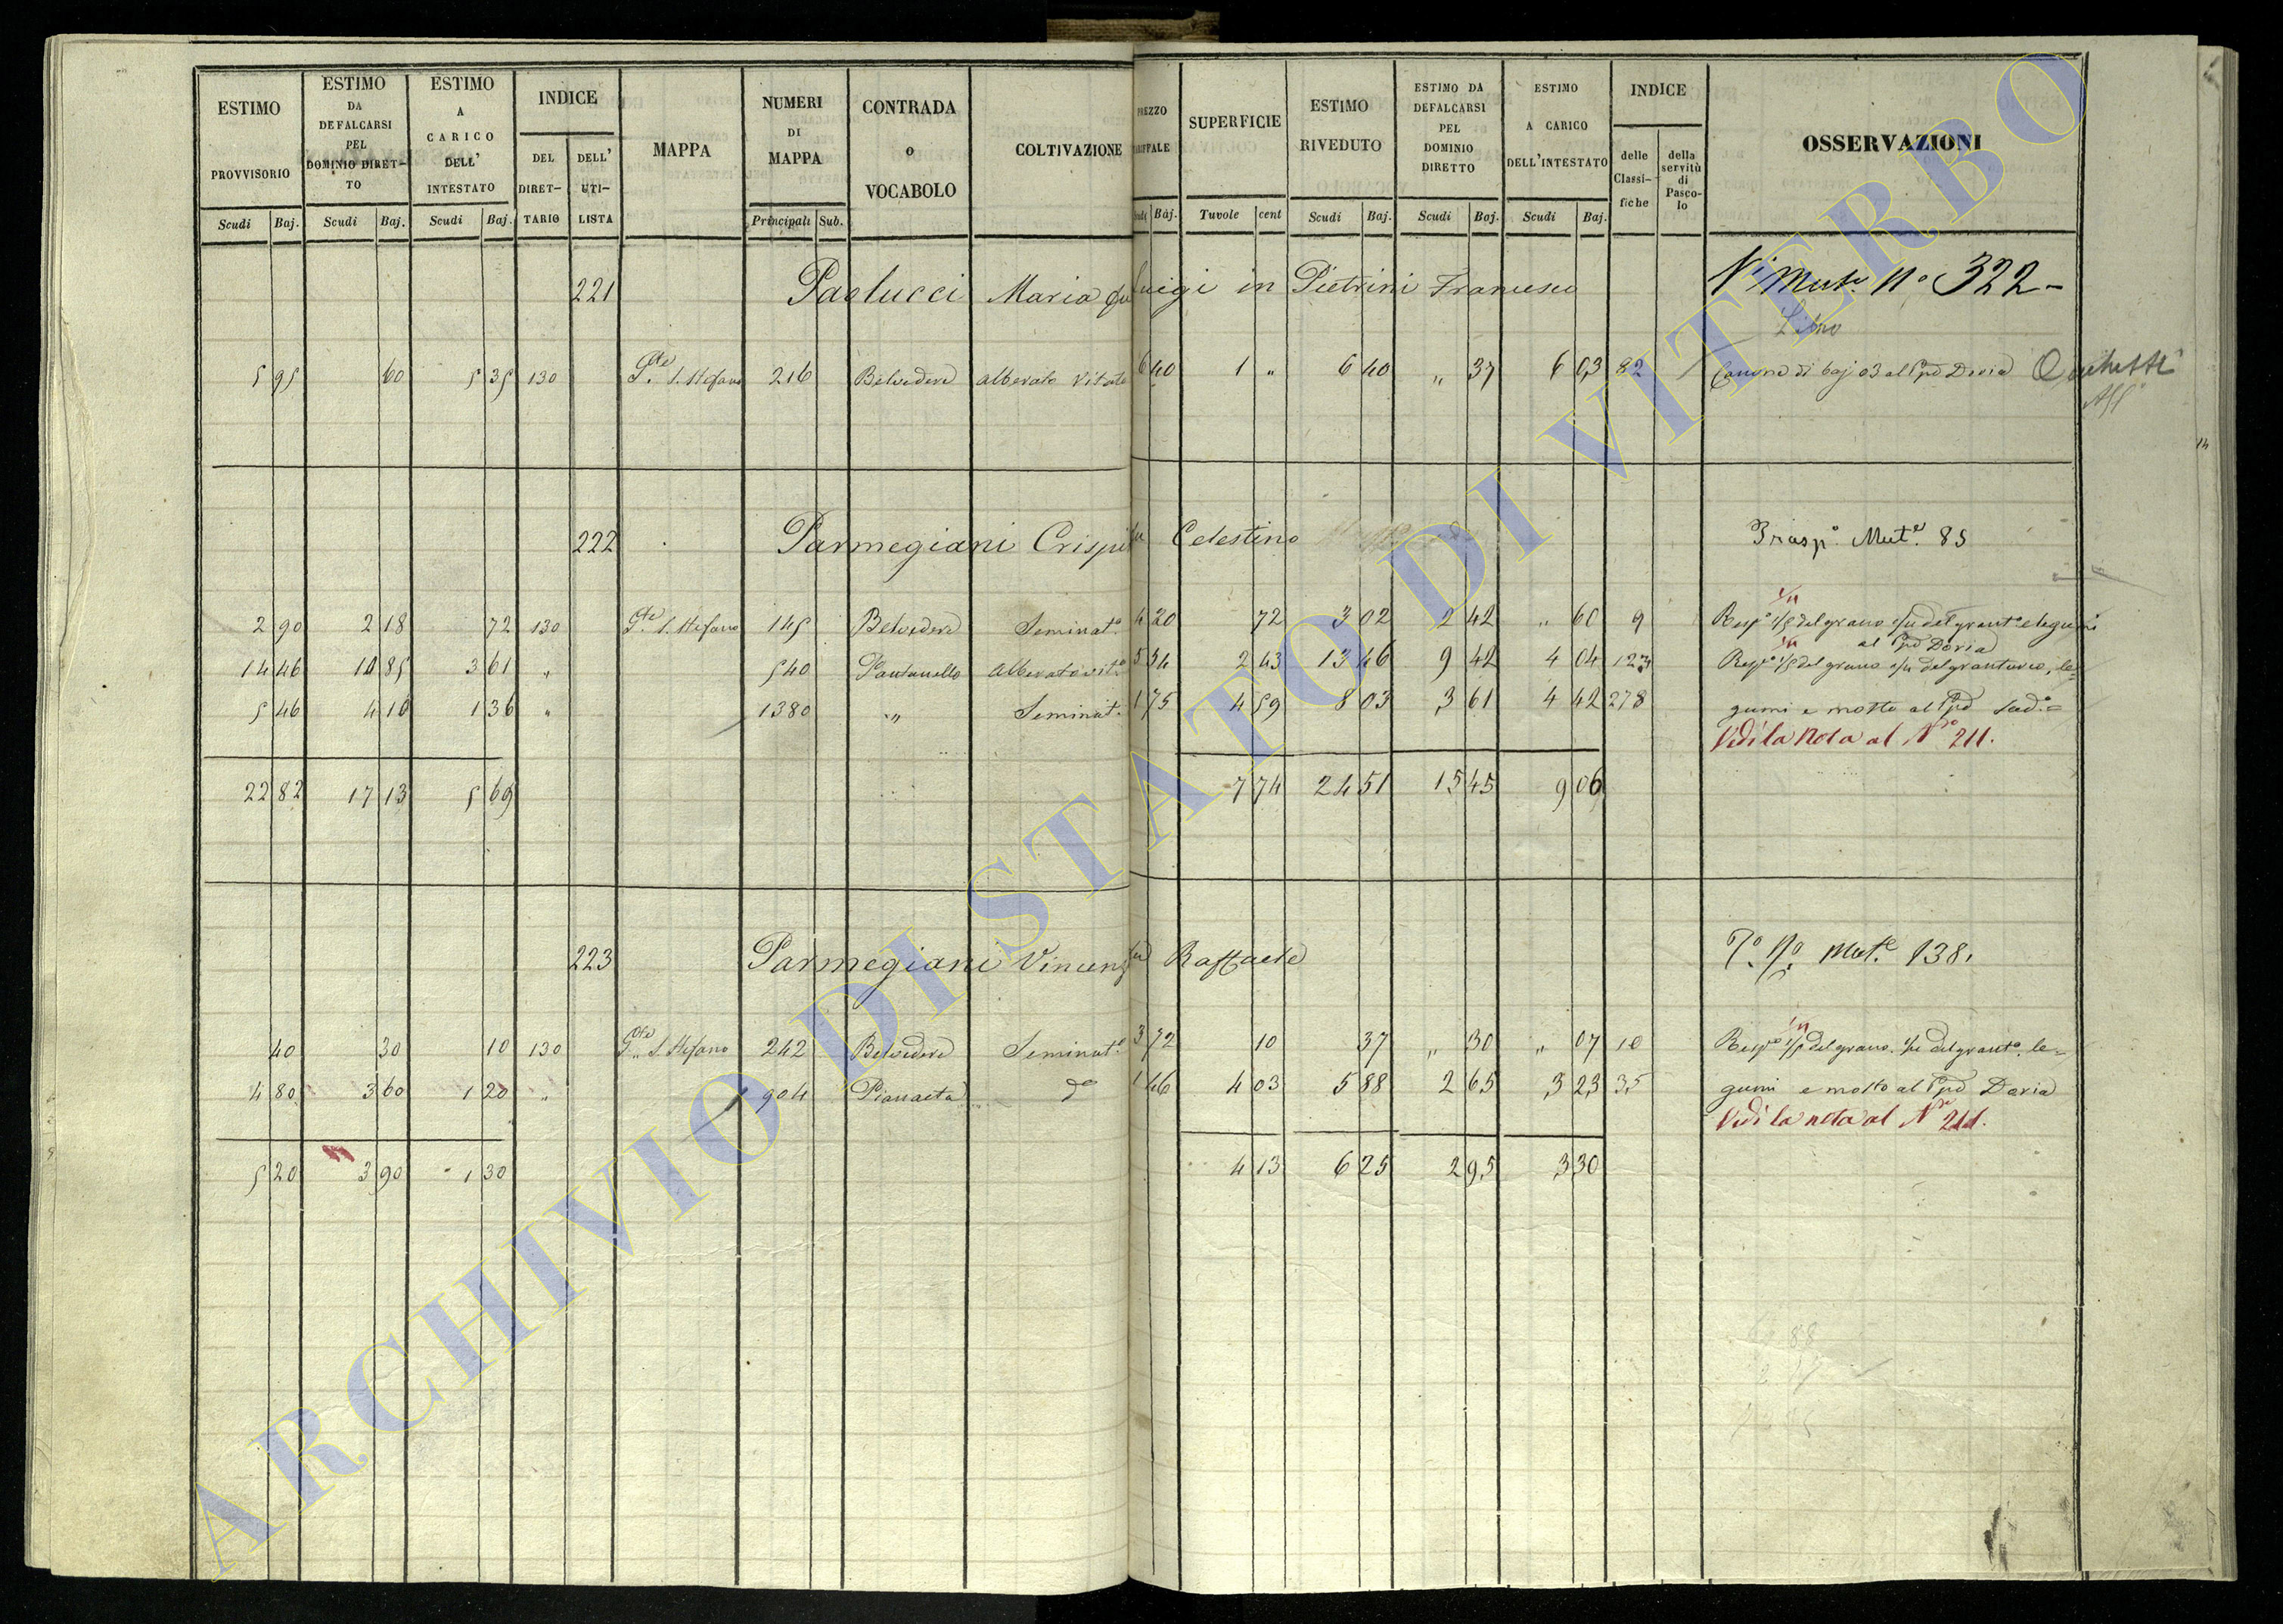 ESTIMO PROVVISORIO Scudi Baj.
ESTIMO DA DEFALCARSI PEL DOMINIO DIRET-TO Scudi Baj.
ESTIMO A CARICO DELL' INTESTATO Scudi Baj.
INDICE DEL DIRET-TARIO DELL' UTI-LISTA
MAPPA
NUMERI DI MAPPA Principali Sub.
CONTRADA o VOCABOLO
COLTIVAZIONE
PREZZO Baj.
SUPERFICIE Tuvole cent
ESTIMO RIVEDUTO Scudi Baj.
ESTIMO DA DEFALCARSI PEL DOMINIO DIRETTO Scudi Baj.
ESTIMO A CARICO DELL'INTESTATO Scudi Baj.
INDICE delle Classi-fiche della servitù di Pasco-lo
OSSERVAZIONI
221 Paolucci Maria fu Luigi in Pietrini Francesco N° Mut. N° 322 -
Libro
5 95 60 5 35 130 S. Stefano 216 Belvedere alberato vitato 6 40 1 „ 6 40 „ 37 6 03 82 Canone di baj 03 al Doria
222 Parmegiani Crispi fu Celestino Trasp° Mut.e 85
2 90 2 18 72 130 S. Stefano 145 Belvedere Seminat.o 4 20 72 3 02 2 42 „ 60 9 Risp° 1/5 del grano del grant. e legumi
al Doria
14 46 10 85 3 61 „ 540 Pantanello alberato vit.o 5 54 2 43 13 46 9 42 4 04 123 Risp° 1/5 del grano del granturco, le=
5 46 4 10 1 36 „ 1380 „ Seminat. 1 75 4 59 8 03 3 61 4 42 278 gumi e mosto al
Vedi la Nota al N° 211.
22 82 17 13 5 69 7 74 24 51 15 45 9 06
223 Parmegiani Vincenz fu Raffaele Mut.e 138.
40 30 10 130 S. Stefano 242 Belvedere Seminat.o 3 72 10 37 „ 30 „ 07 10 Risp° 1/5 del grano del grant.o, le=
4 80 3 60 1 20 „ 904 Piannetta d° 1 46 4 03 5 88 2 65 3 23 35 gumi e mosto al Doria
Vedi la nota al N° 211.
5 20 3 90 1 30 4 13 6 25 2 95 3 30
14
ARCHIVIO DI STATO DI VITERBO